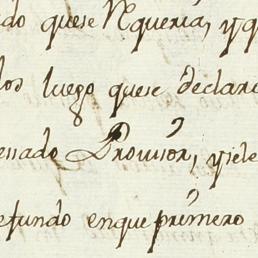 do quese Rqueria, y q
los luego quese declara
enado Provisor, y ele
efundo enque primero